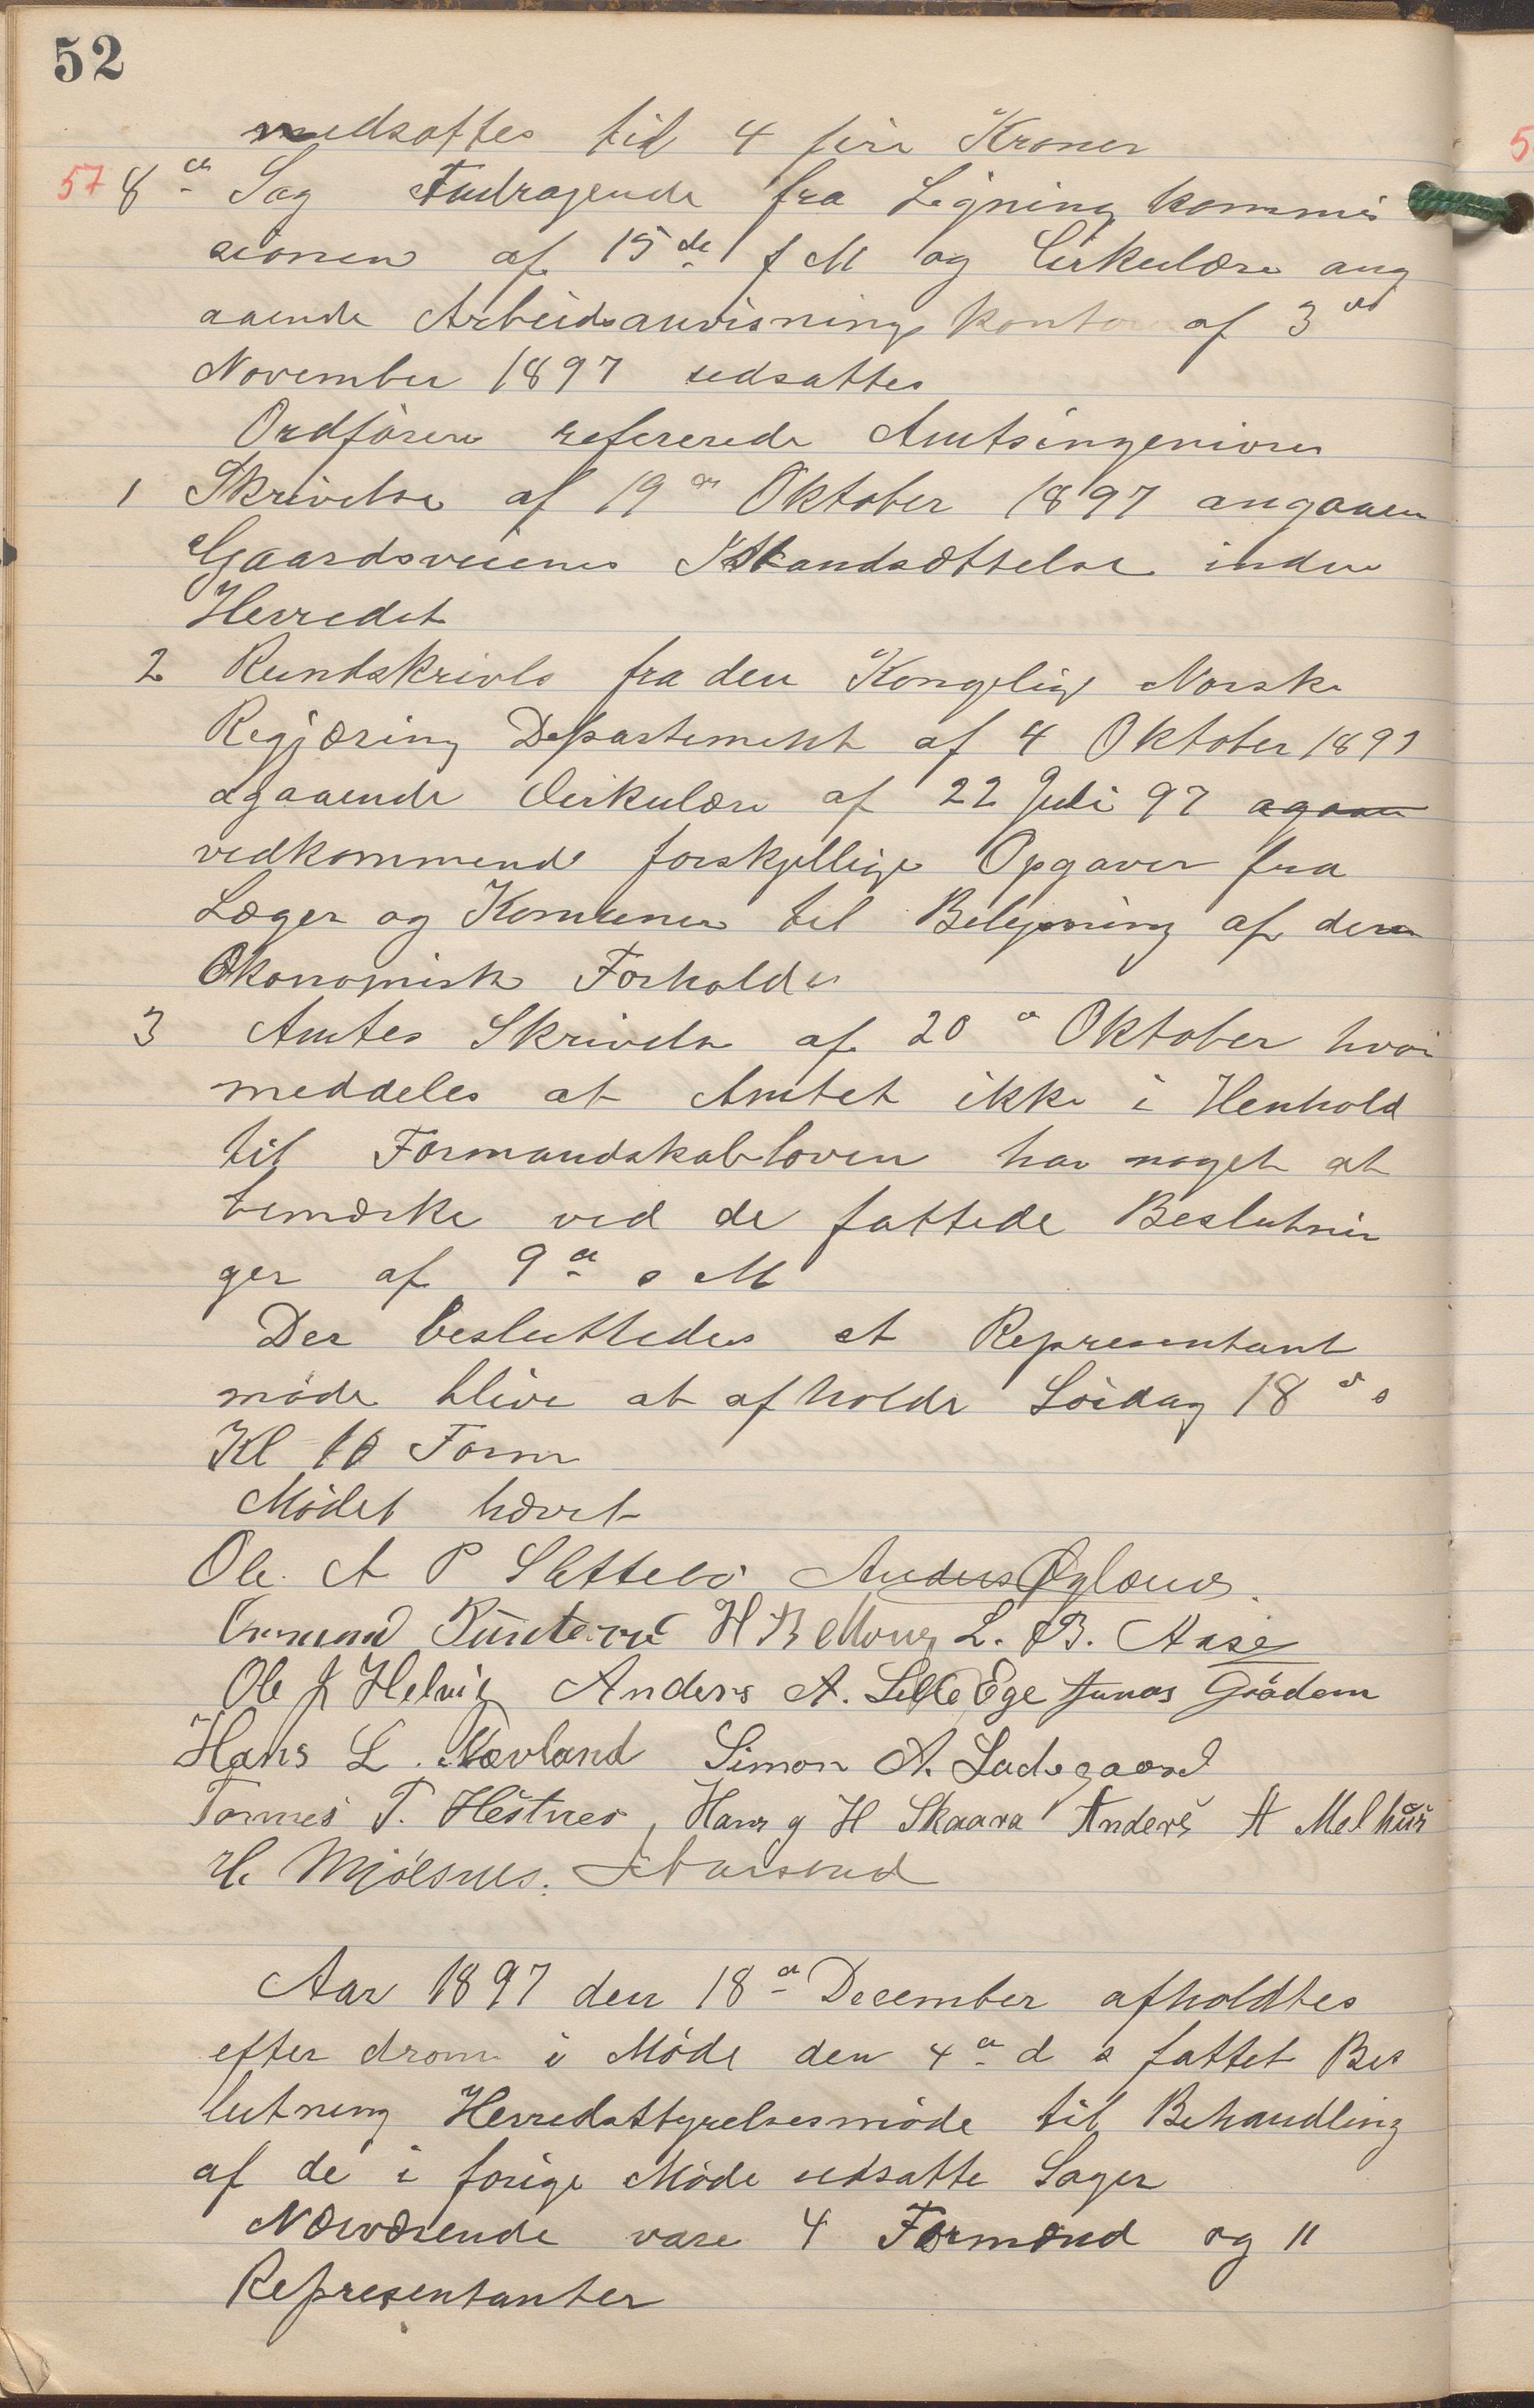 52
nedsattes til 4 fire Kroner
57 8de Sag Andragende fra Ligning kommis
sionen af 15de f M og Cirkulære ang
aaende Arbeidsanvisnings kontor af 3de
November 1897 udsattes
Ordføren refererede Amtsingeniøren
1 Skrivelse af 19de Oktober 1897 angaaen
Gaardsveienes Istandsættelse inden
Herredet
2 Rundskrivls fra den Kongelig Norske
Regjæring Departement af 4 Oktober 1897
agaaende Cirkulære af 22 Juli 97 agaaen
vedkommende forskjellige Opgaver fra
Læger og Komuner til Belysning af deres
Økonomisk Forholde
3 Amtes Skrivelse af 20de Oktober hvor
meddeles at Amtet ikke i Henhold
til Formandskabsloven har noget at
bemærke ved de fattede Beslutnin
ger af 9de s M
Der besluttedes at Represæntant
møde blive at afholde Løidag 18de s
Kl 10 Form
Mødet hævet
Ole A P Slettebø Anders Øglænd
H B L. B. Aase
Ole J Helvig Anders A. Lille Ege Junas Grødem
Hans L. Nævland Simon A. Ladegaard
Tønnes T. Hestnes, Hans H Skaara Anders A Melhus
H. Mjølsnes.
Aar 1897 den 18de December afholdtes
efter drom i Møde den 4de d s fattet Bes
lutning Herredsttyrelsesmøde til Behandling
af de i forige Møde udsatte Sager
Nærværende vare 4 Formænd og 11
Representanter